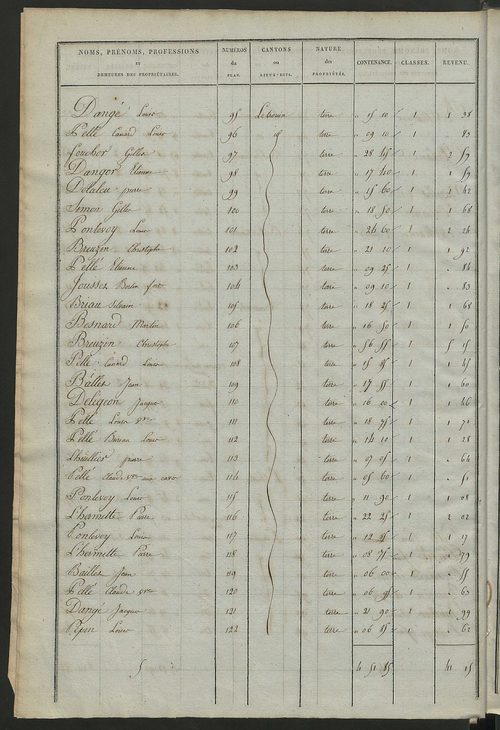 NOMS, PRÉNOMS, PROFESSIONS ET DEMEURES DES PROPRIÉTAIRES. NUMÉROS du PLAN. CANTONS ou LIEUX-DITS. NATURE des PROPRIÉTÉS. CONTENANCE. CLASSES. REVENU.
Dangé Louis 95 terre " 15 10 1 1 38
Pellé Louis 96 id terre " 09 10 1 " 83
Gilles 97 terre " 28 45 1 2 59
Dangor Etienne 98 terre " 17 40 1 1 59
Delaleu pierre 99 terre " 15 60 1 1 42
Simon Gilles 100 terre " 18 50 1 1 68
Pontevoy Louis 101 terre " 24 60 1 2 24
Breuzin Christophe 102 terre " 21 10 1 1 92
Pellé Etienne 103 terre " 09 25 1 " 84
Jousset 104 terre " 09 10 1 " 83
Briau Silvain 105 terre " 18 25 1 1 68
Besnard Martin 106 terre " 16 50 1 1 50
Breuzin Christophe 107 terre " 56 55 1 5 15
Pellé Louis 108 terre " 15 85 1 1 45
Bailles Jean 109 terre " 17 55 1 1 60
Delégeon Jacques 110 terre " 16 00 1 1 46
Pellé Louis 111 terre " 18 75 1 1 71
Pellé Louis 112 terre " 14 10 1 1 28
pierre 113 terre " 07 05 1 " 64
Pellé Claude 114 terre " 05 60 1 " 51
Pontevoy Louis 115 terre " 11 90 1 1 08
L'hermitte Pierre 116 terre " 22 25 1 2 02
Pontevoy Louis 117 terre " 12 85 1 1 17
L'hermitte Pierre 118 terre " 08 75 1 " 79
Bailles Jean 119 terre " 06 00 1 " 55
Pellé Claude 120 terre " 06 95 1 " 63
Dangé Jacques 121 terre " 21 90 1 1 99
Pépin Louis 122 terre " 06 85 1 " 62
5 4 51 85 41 15